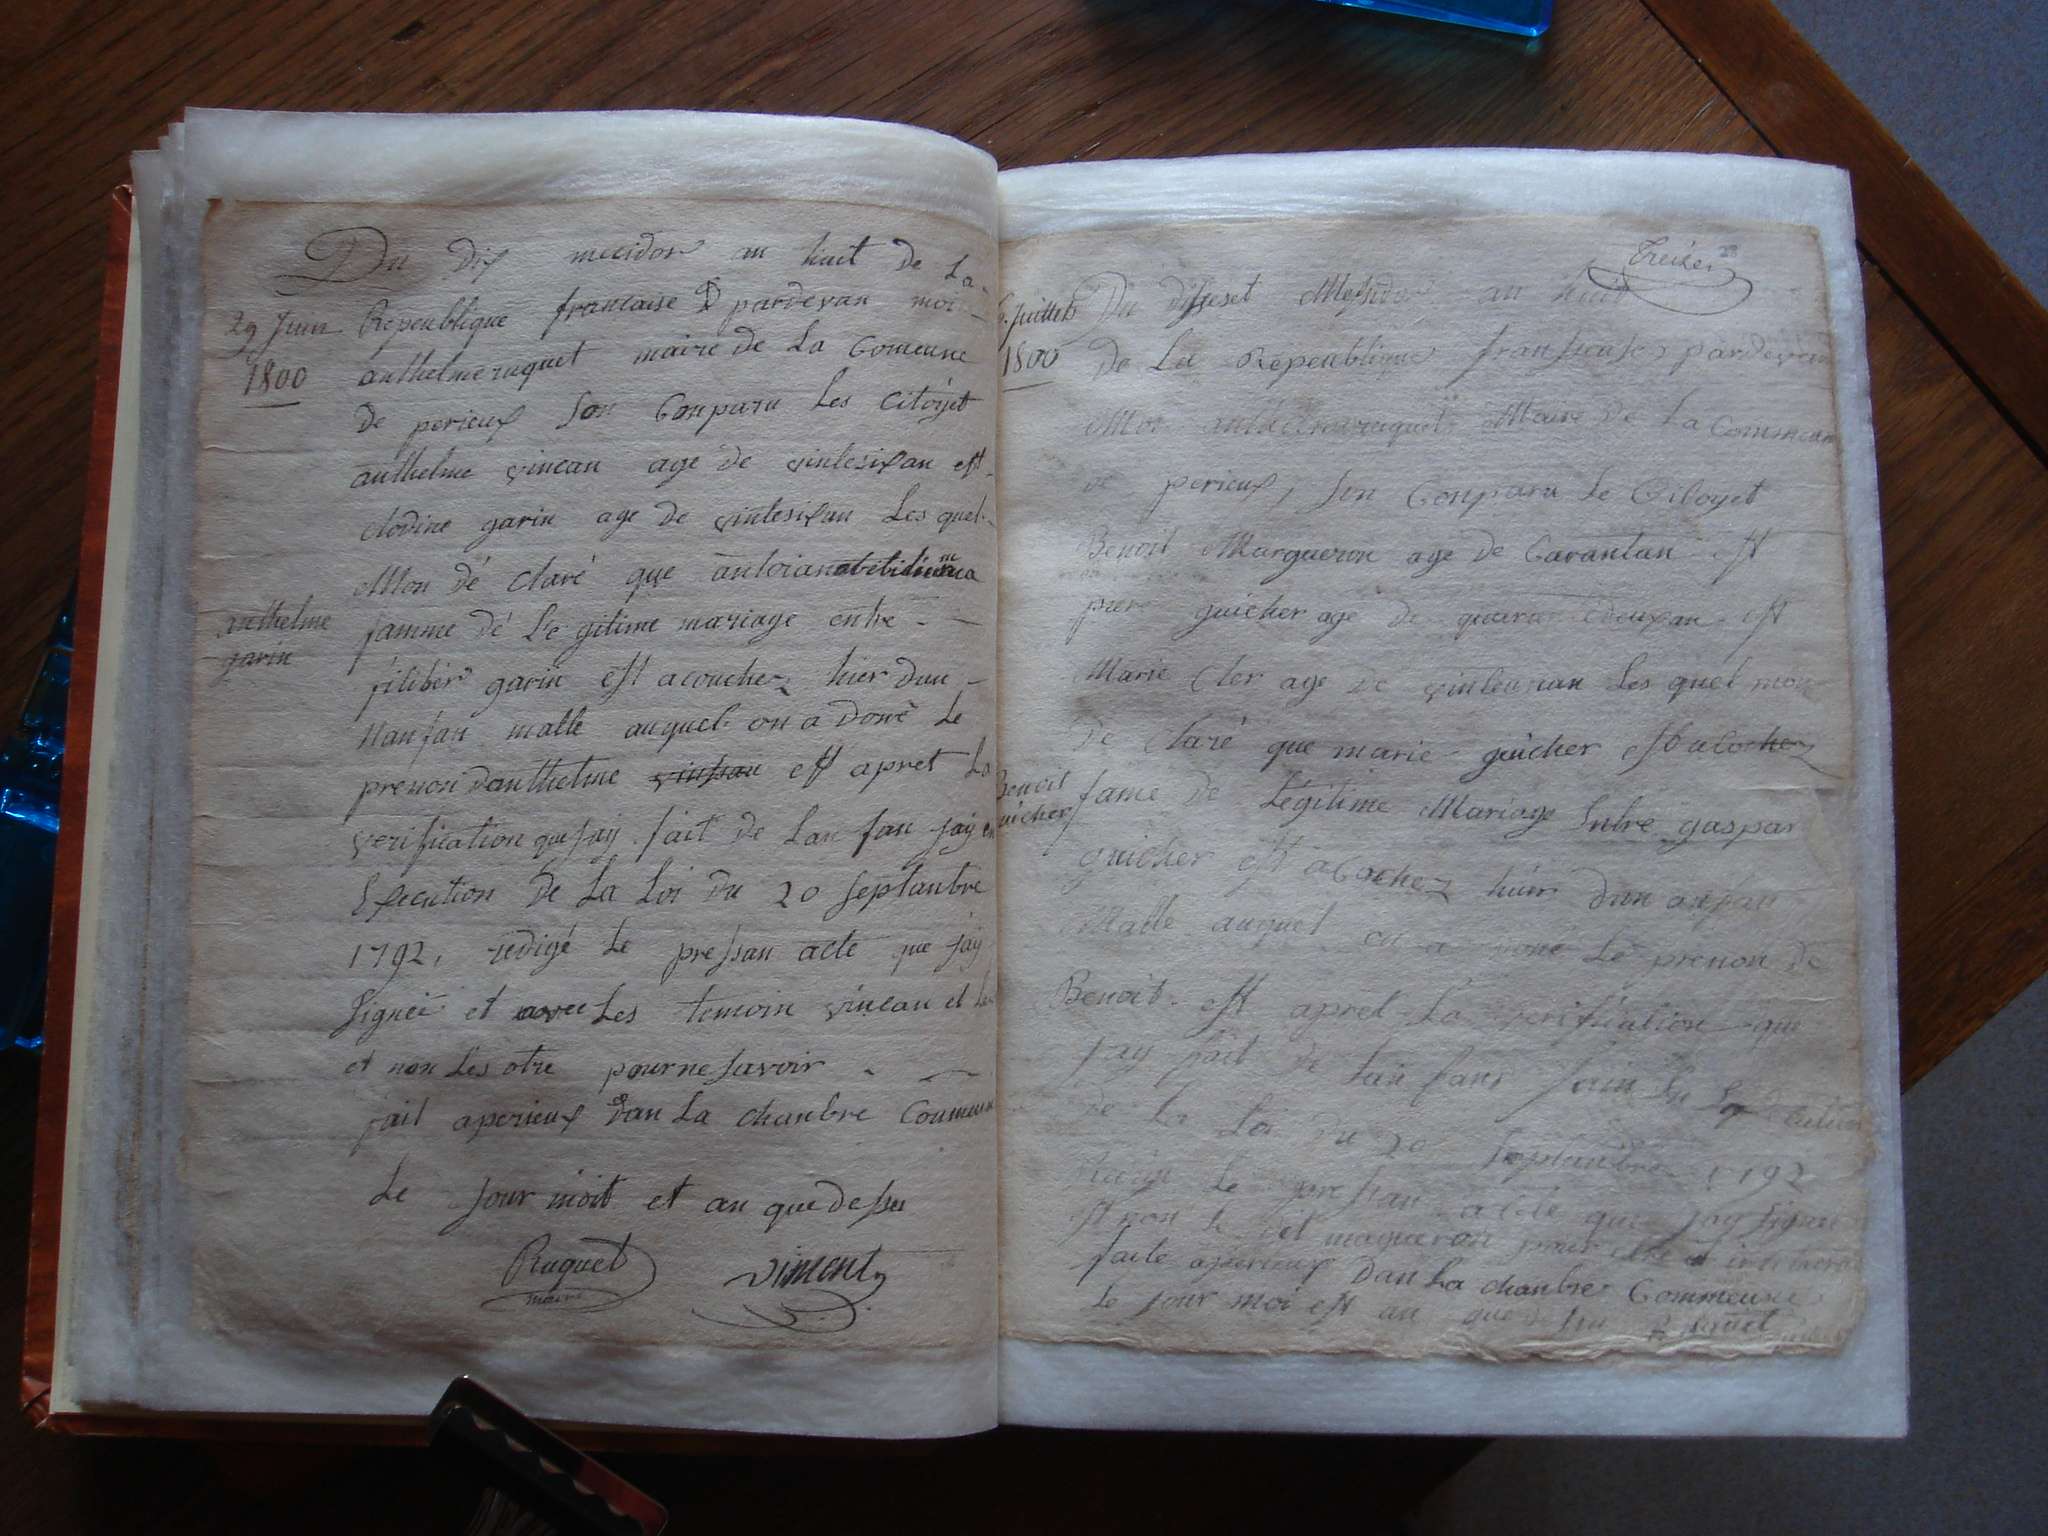 Du dix mecidor an huit de La
29 Juin
1800
Republique francaise pardevan moi
anthelme ruquet maire de La Comeune
de perieux Son Conparu Les Citoyet
anthelme vincan age de vintesixan est
clodine garin age de vintesixan Les quel
Mon dé claré que antoian
anthelme
garin
famme dé Le gitime mariage entre
filiber garin est acoucher hier dun
Nanfan malle auquel on a donè Le
prenon danthelme vinsan est apret La
verification que jay fait de Lan fan jay en
Execution de La Loi du 20 Septanbre
1792, redigé Le pressan acte que jay
Signée et avec Les temoin vincan et
et non Les otre pourne Savoir
fait aperieux dan La chanbre Comeune
Le Jour moit et an que dessu
Ruquet
maire
viment
Treizer
28
Juillet
1800
Du disseset Messidor an huit
De La Republique fransuise pardevan
Moi anthelme ruquet Maire de La Commeun
de perieux, Son Conparu Le Citoyet
Benoit Margueron age de Carantan est
piere guicher age de quarante deuxan est
Marie Cler age de vinteunan Les quel mon
De Claré que marie guicher est acocher
Benoit
guicher
fame De Légitime Mariage Entre gaspar
guicher est acocher hier dun anfan
Malle auquel on a doné Le prenon de
Benoit est apret La verification que
Jay fait de Lan fans Execution
de La Loi du 20 Septanbre 1792
Le pressan acte que Jay Signe
Et non Le dit magueron pour
faite aperieux Dan La chanbre Commeune
Le Jour moi est an que dessu Ruquet